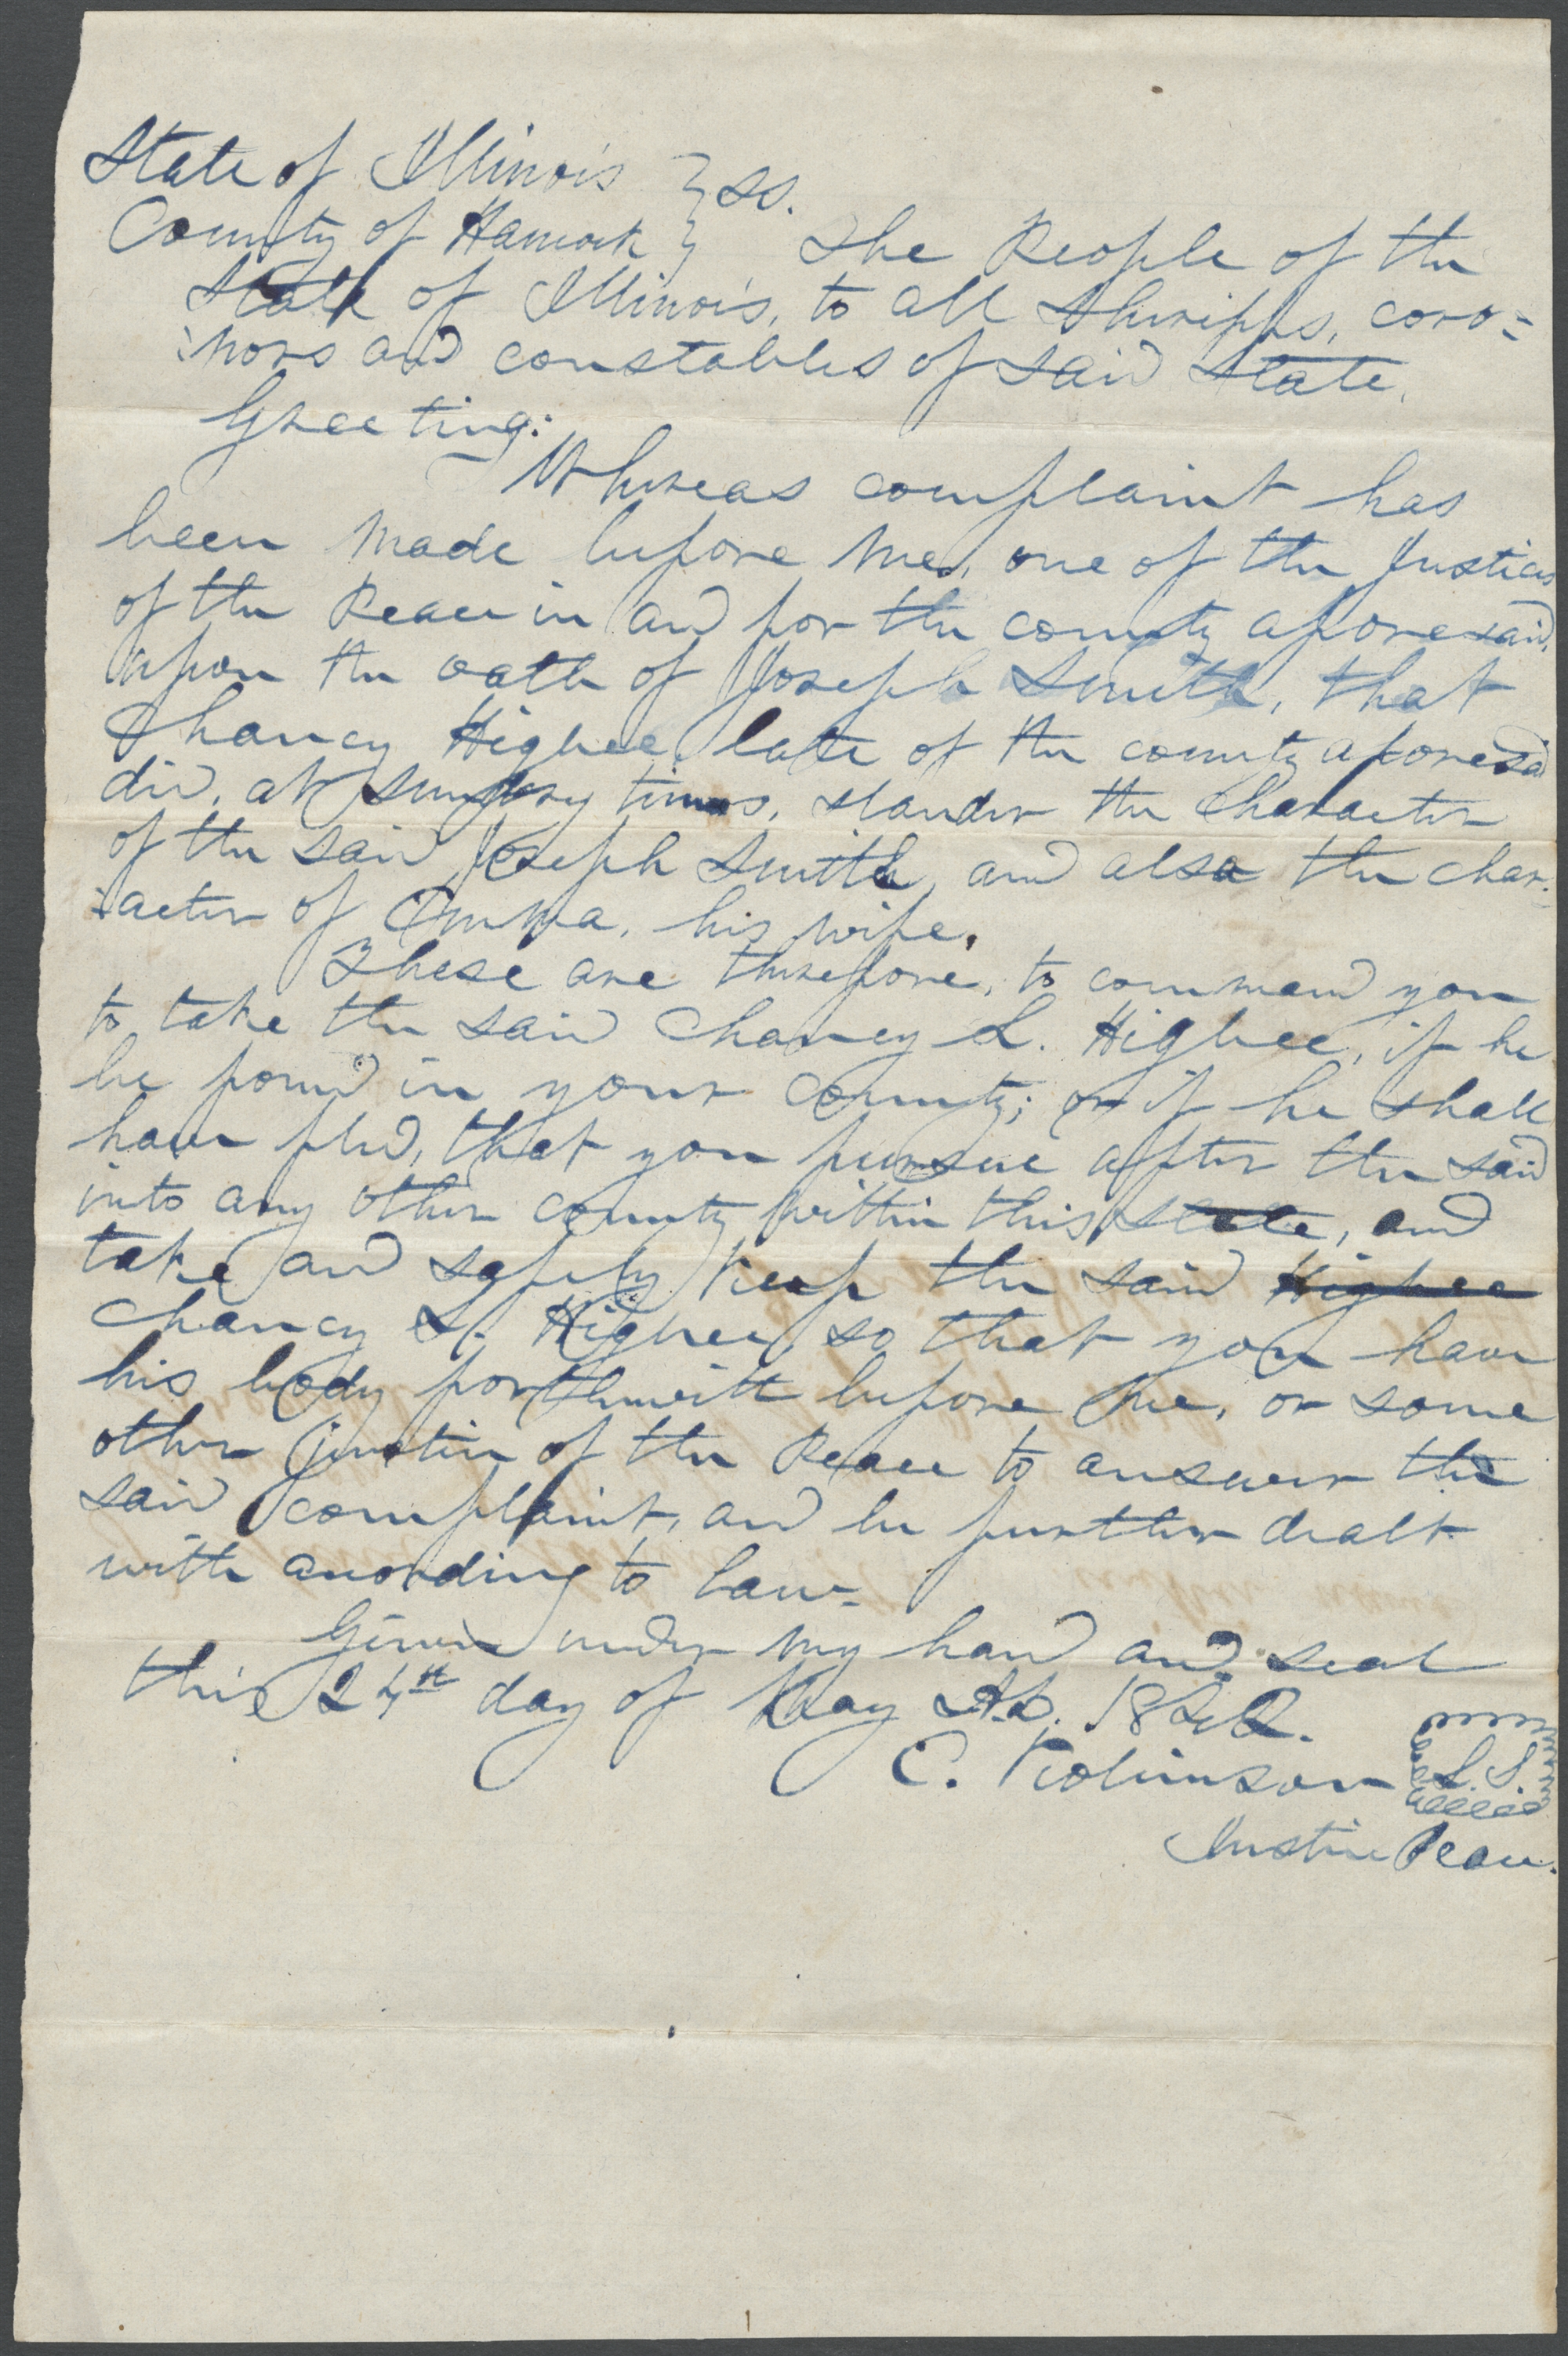 State of Illinois } ss.
County of Hancock } The People of the
State of Illinois, to all Sheriffs, coro=
=nors and constables of said State,
Greeting:
Whereas complaint has
been made before me, one of the Justices
of the Peace in and for the county aforesaid,
upon the oath of Joseph Smith, that
Chancy Higbee, late of the county aforesaid
did, at sundry times, slander the character
of the said Joseph Smith, and also the char=
=acter of Emma, his wife.
These are therefore, to command you
to take the said Chancy L. Higbee, if he
be found in your county; or if he shall
have fled, that you pursue after the said
into any other county within this state, and
take and safely keep the said Higbee
Chancy L. Higbee, so that you have
his body forthwith before me, or some
other justice of the Peace to answer the
said complaint, and be further dealt
with according to law.
Given under my hand and seal
this 24th day of May A.D. 1842.
E. Robinson L.S.
Justice Peace.